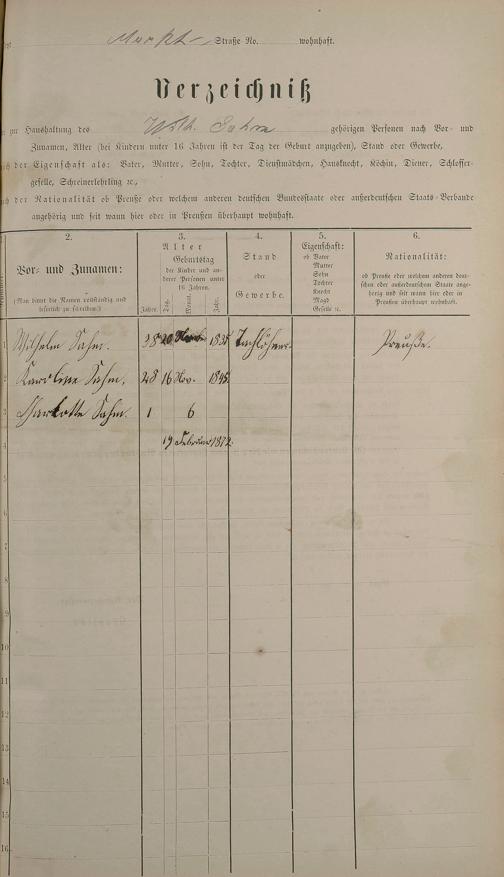 Markt Straße No. wohnhaft.
Verzeichniß
zur Haushaltung des Wilh. Sahm gehörigen Personen nach Vor- und
Zunamen, Alter (bei Kindern unter 16 Jahren ist der Tag der Geburt anzugeben), Stand oder Gewerbe,
der Eigenschaft als: Vater, Mutter, Sohn, Tochter, Dienstmädchen, Hausknecht, Köchin, Diener, Schlosser-
geselle, Schreinerlehrling ꝛc.,
der Nationalität ob Preuße oder welchem anderen deutschen Bundesstaate oder außerdeutschen Staats-Verbande
angehörig und seit wann hier oder in Preußen überhaupt wohnhaft.
2. 3. 4. 5. 6.
Vor- und Zunamen:
(Man bittet die Namen vollständig und
leserlich zu schreiben.)
Alter
Geburtstag
der Kinder und an-
derer Personen unter
16 Jahren.
Jahre. Tag. Monat. Jahr.
Stand
oder
Gewerbe.
Eigenschaft:
ob Vater
Mutter
Sohn
Tochter
Knecht
Magd
Geselle ꝛc.
Nationalität:
ob Preuße oder welchem anderen deut-
schen oder außerdeutschen Staate ange-
hörig und seit wann hier oder in
Preußen überhaupt wohnhaft.
1 Wilhelm Sahm. 38 20 1835 Taglöhner Preuße.
2 Karoline Sahm. 28 16 Nov. 1845
3 Charlotte Sahm. 1 6
4 19 Februar 1872.
5
6
7
8
9
10
11
12
13
14
15
16